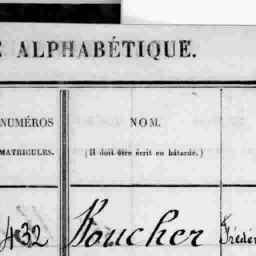 E ALPHABÉTIQUE.
NUMÉROS
MATRICULES.
NOM.
(Il doit être écrit en bâtarde.)
432 Boucher Fréder